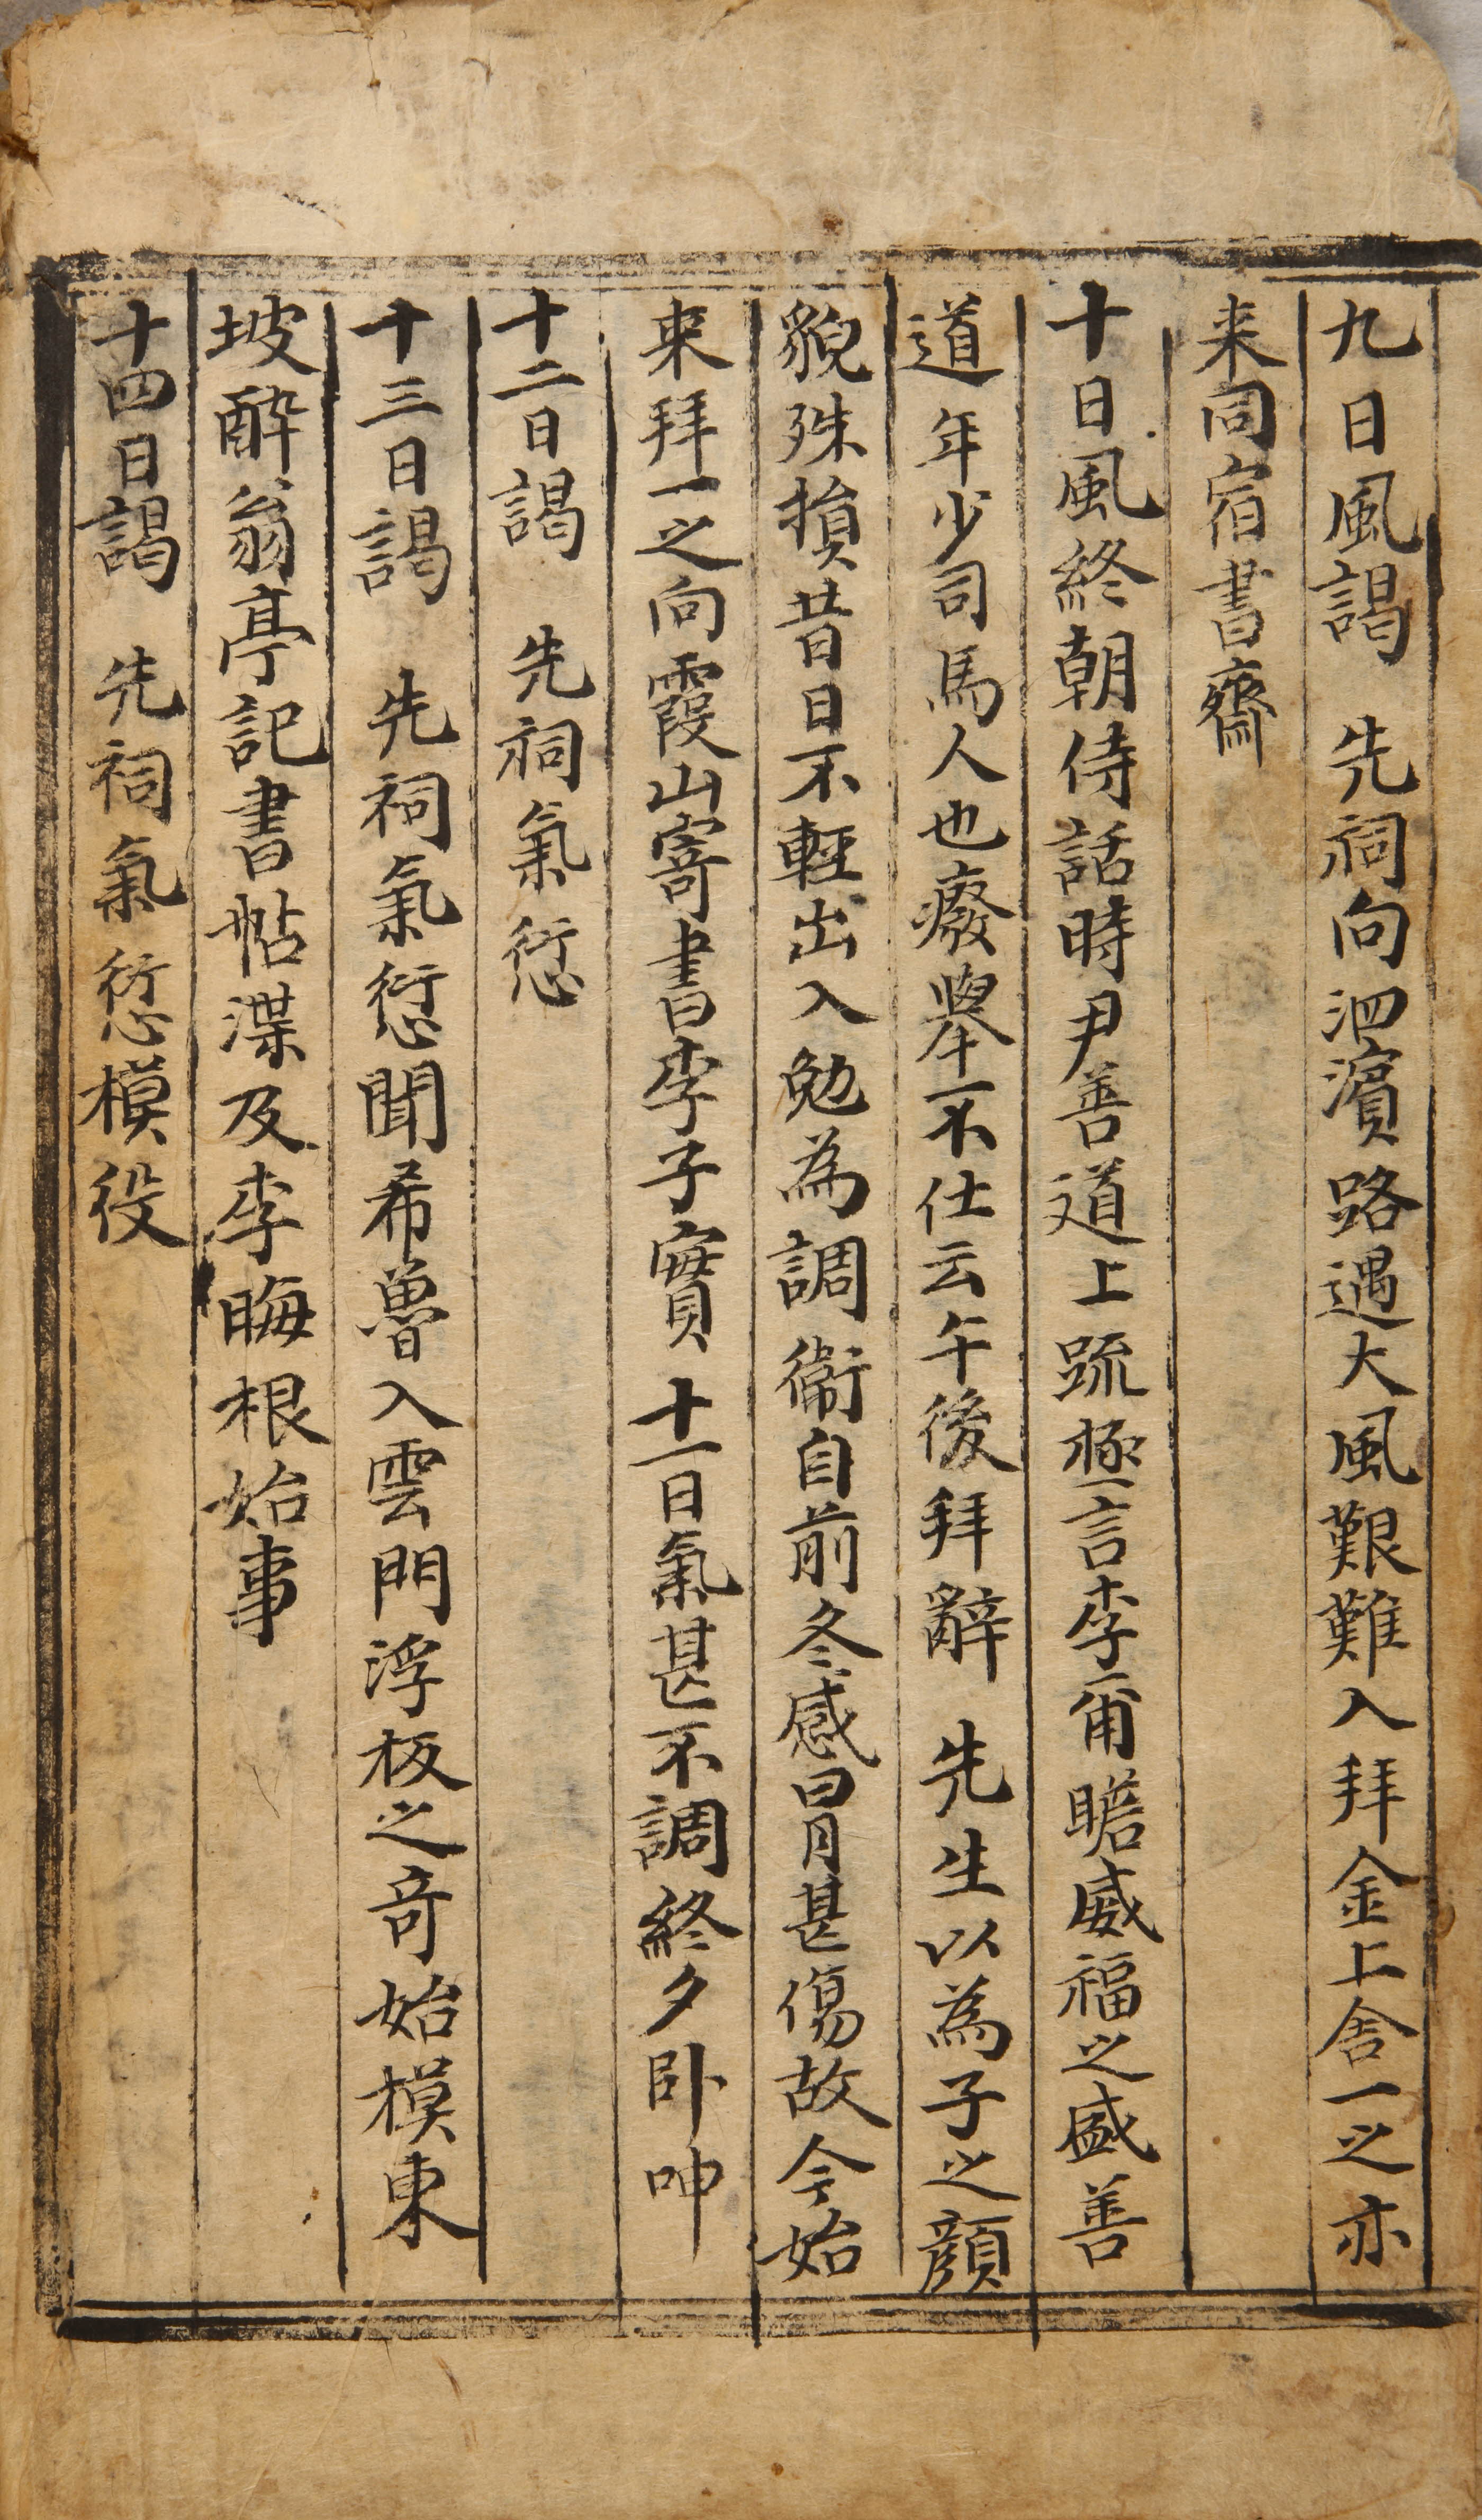 九日風謁 先祠向泗濱路遇大風艱難入拜金上舍一之亦
来同宿書齋
十日風終朝侍話時尹善道上䟽極言李爾瞻威福之盛善
道年少司馬人也癈擧不仕云午後拜辭 先生以為子之顔
貌殊損昔日不輕出入勉為調衛自前冬感冒甚傷故今始
来拜一之向霞山寄書李子實 十一日氣甚不調終夕卧呻
十二日謁 先祠氣愆
十三日謁 先祠氣愆聞希魯入雲門浮板之奇始模東
坡醉翁亭記書帖渫及李晦根始事
十四日謁 先祠氣愆模役